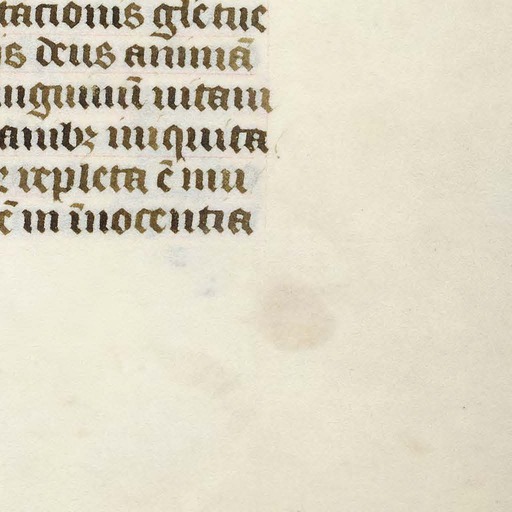 tacionis glĕ tue
s deus animā
nguinū uitam
anibꝫ iniquita
repleta ē mu
ē in īnocentia